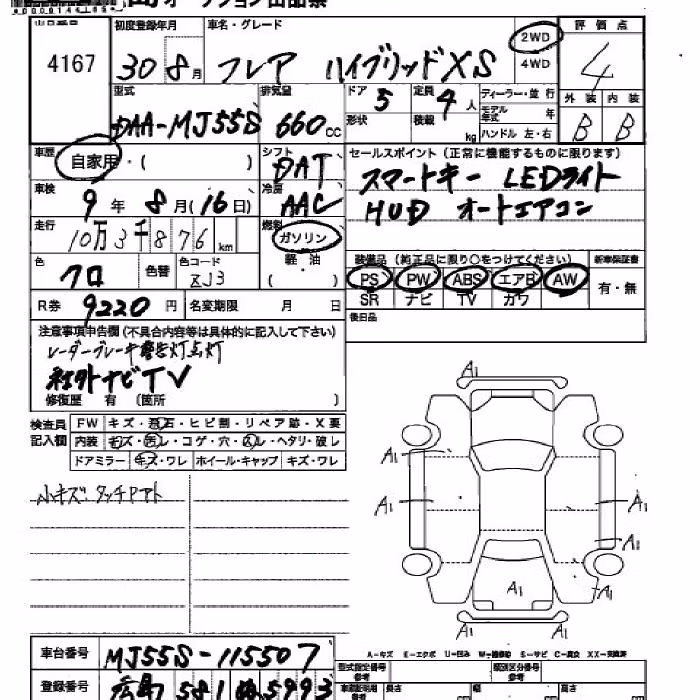 オークション出品票
出品番号 初度登録年月 車名・グレード 2WD 4WD 評価点
4167 30 8月 フレア ハイブリッドXS 4
型式 排気量 ドア 定員 ディーラー・並行 外装 内装
DAA-MJ55S 660cc 5 4人 モデル年式 年 B B
形状 積載 kg ハンドル 左・右
車歴 自家用・( ) シフト DAT セールスポイント (正常に機能するものに限ります)
車検 9年 8月(16日) 冷房 AAC スマートキー LEDライト
HUD オートエアコン
走行 10万3千876km 燃料 ガソリン 軽・油 ( )
装備品 (純正品に限り○をつけてください) 新車保証書
色 クロ 色替 色コード ZJ3 PS PW ABS エアB AW 有・無
SR ナビ TV カワ
R券 9220円 名変期限 月 日 後日品
注意事項申告欄 (不具合内容等は具体的に記入して下さい)
レーダーブレーキ警告灯点灯
社外ナビTV
修復歴 有 〔箇所 〕
検査員記入欄 FW キズ・飛石・ヒビ割・リペア跡・X要
内装 キズ・汚レ・コゲ・穴・スレ・ヘタリ・破レ
ドアミラー キズ・ワレ ホイール・キャップ キズ・ワレ
小キズ、タッチアト
A1
A1 A1
A1 A1
A1
A1 A1
A1
A-キズ E-エクボ U-凹み W-補修跡 S-サビ C-腐食 XX-交換済
車台番号 MJ55S-115507
型式指定番号 参考 類別区分番号 参考
登録番号 広島 581 5993
長さ cm cm cm